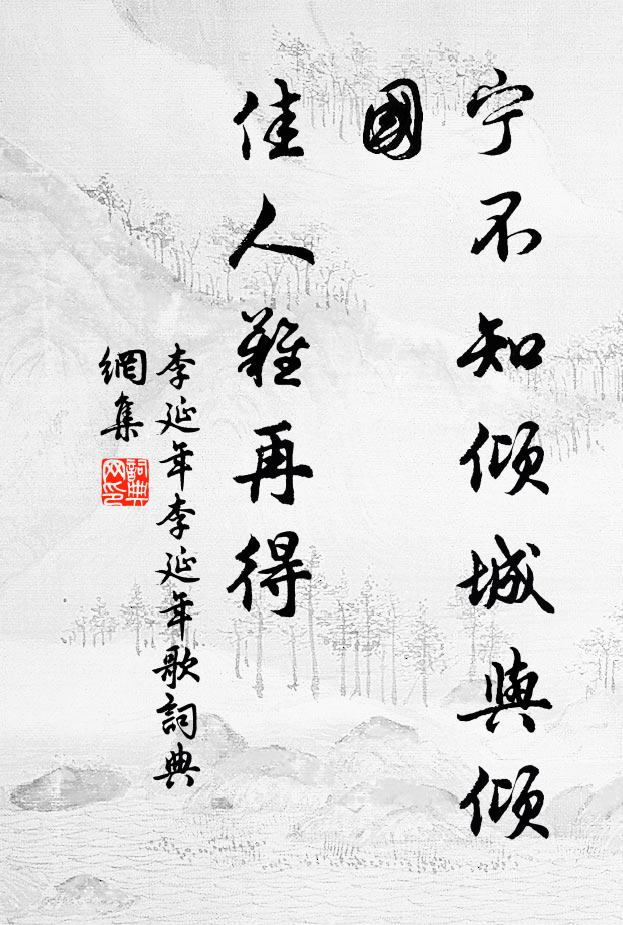 宁不知倾城與倾
國
佳人難再得
李延年李延年歌詞典
網集
詞典
网印